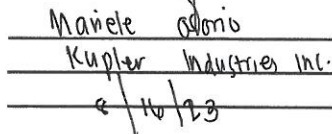 Mariele odorio
Kupler Industries Inc.
8/16/23